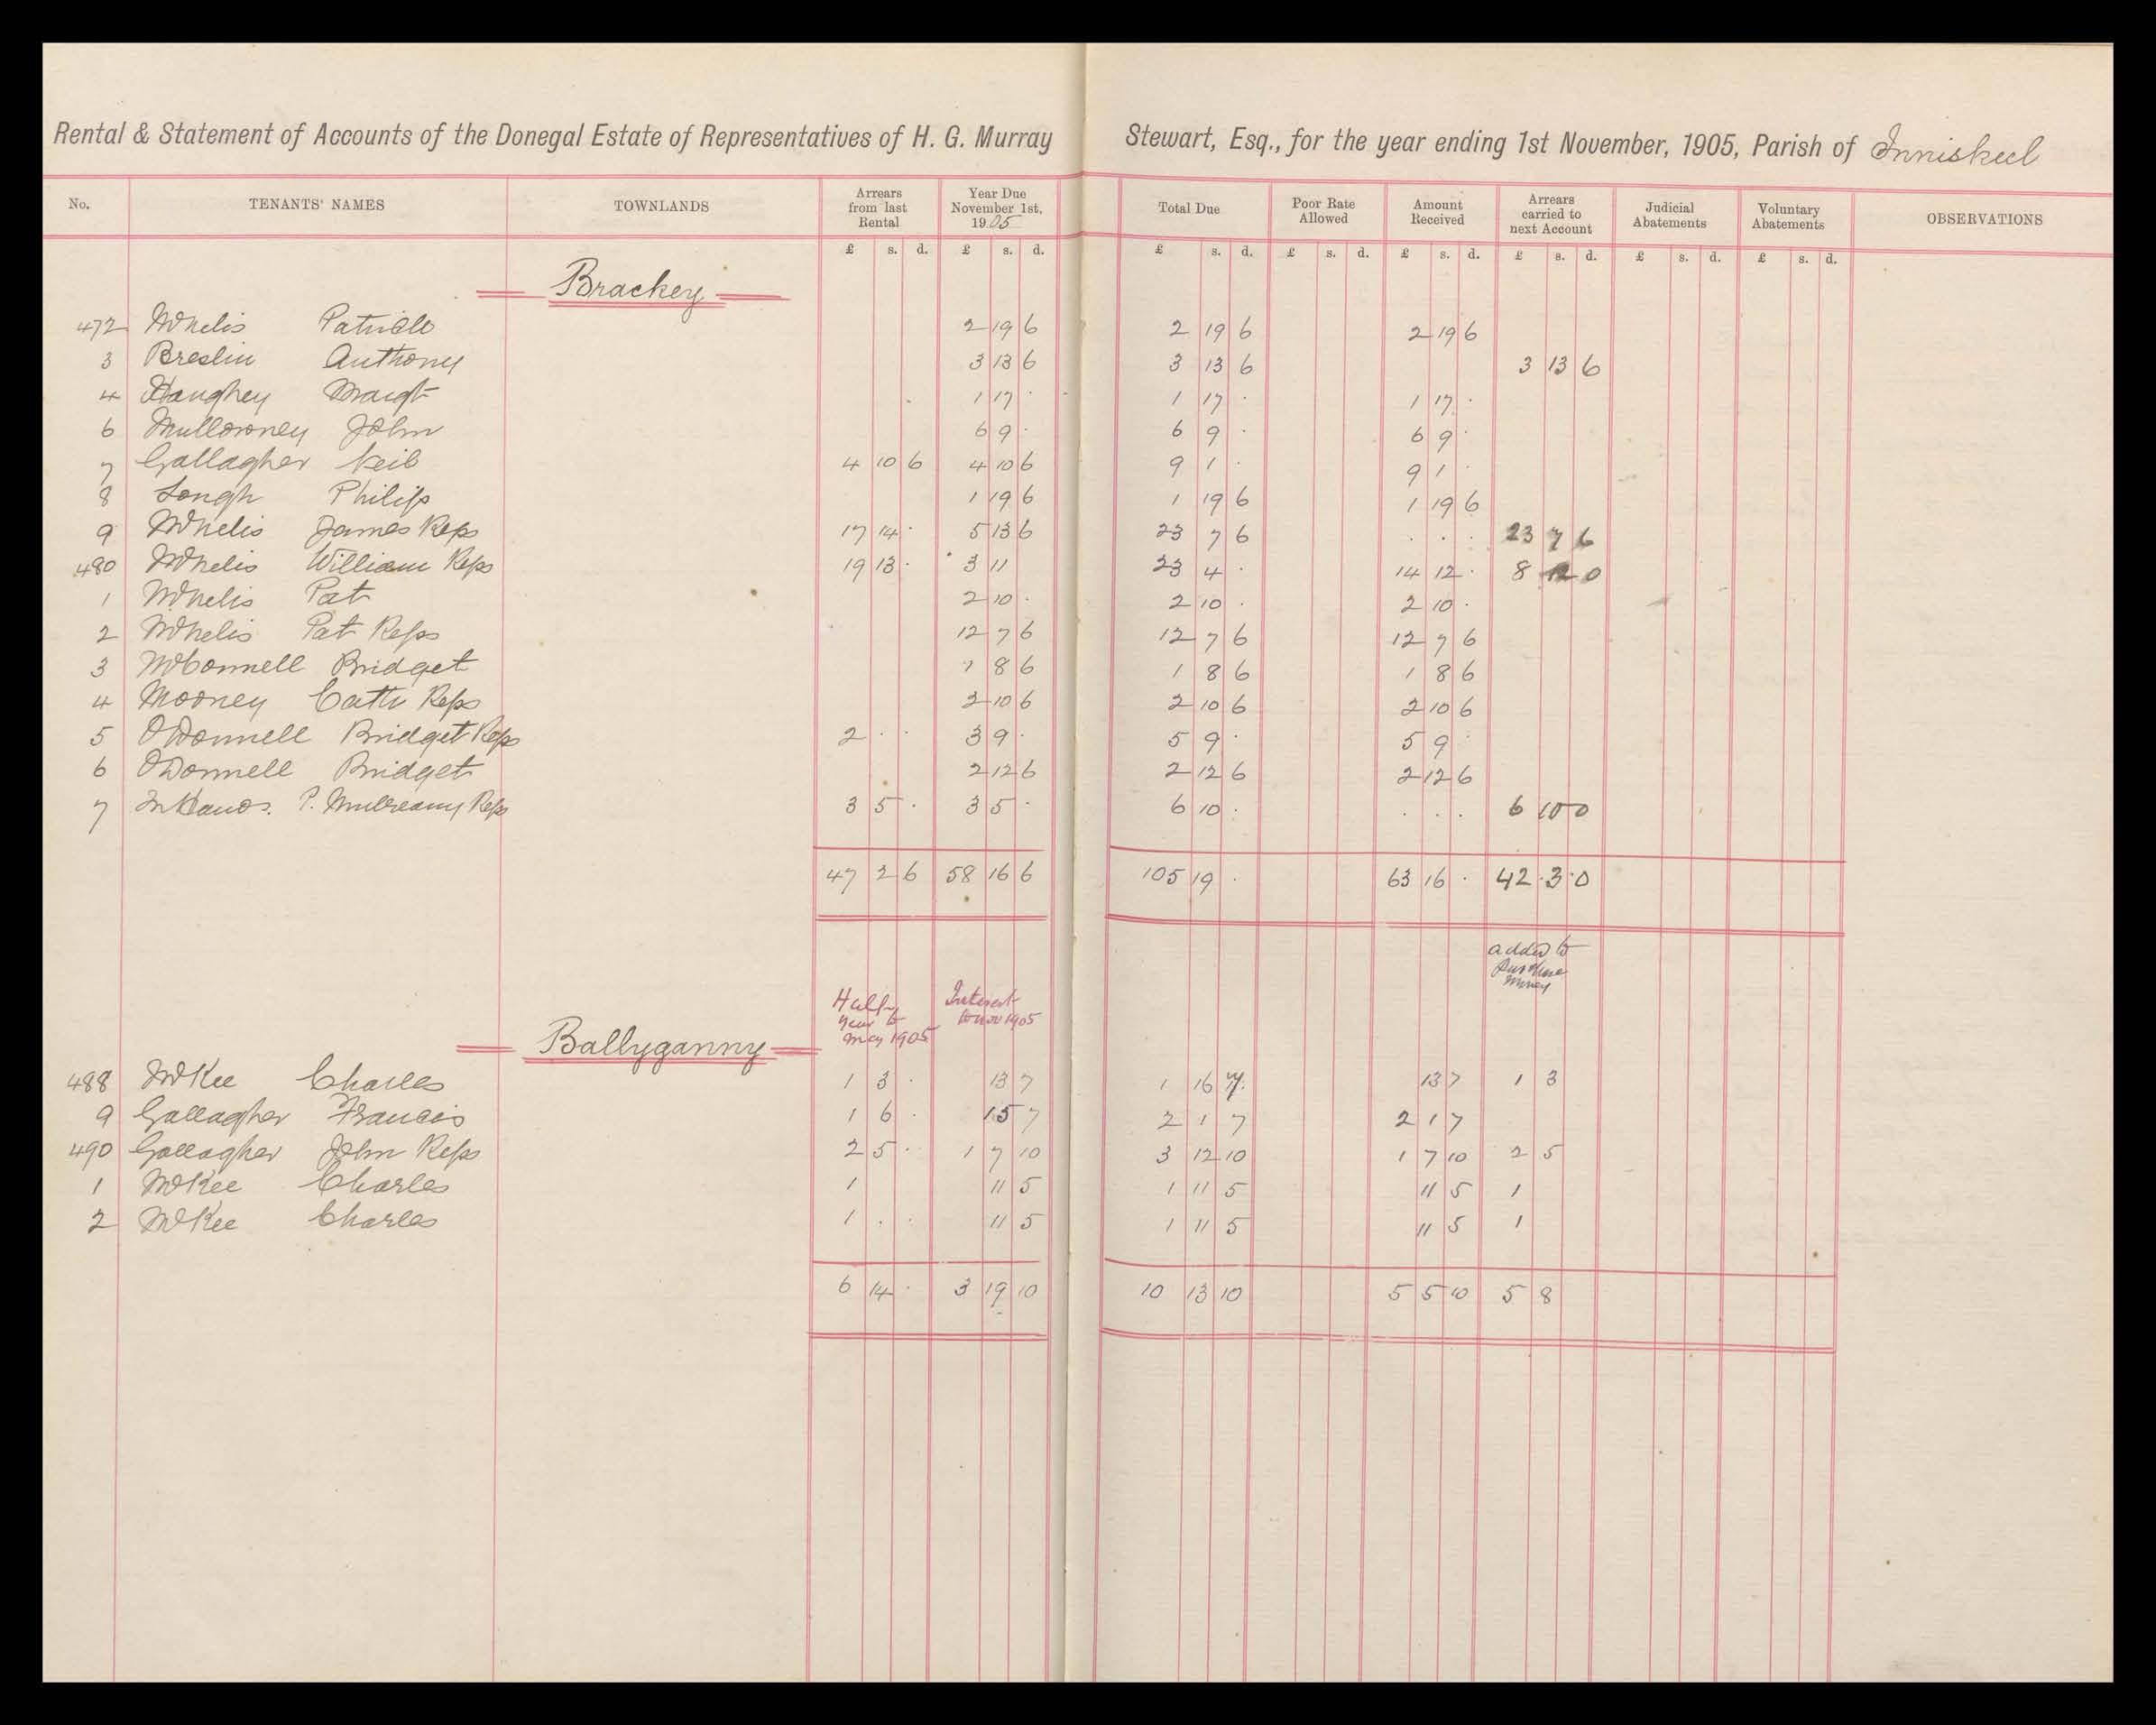 Rental & Statement of Accounts of the Donegal Estate of Representatives of H. G. Murray Stewart, Esq., for the year ending 1st November, 1905, Parish of Inniskeel
No. TENANTS' NAMES TOWNLANDS Arrears from last Rental Year Due November 1st, 1905 Total Due Poor Rate Allowed Amount Received Arrears carried to next Account Judicial Abatements Voluntary Abatements OBSERVATIONS
£ s. d. £ s. d. £ s. d. £ s. d. £ s. d. £ s. d. £ s. d. £ s. d.
Brackey
472 McNelis Patrick 2 19 6 2 19 6 2 19 6
3 Breslin Anthony 3 13 6 3 13 6 3 13 6
4 Haughey Margt 1 17 . 1 17 . 1 17 .
6 Mullowney John 6 9 . 6 9 . 6 9 .
7 Gallagher Neil 4 10 6 4 10 6 9 1 . 9 1 .
8 Longh Philip 1 19 6 1 19 6 1 19 6
9 McNelis James Reps 17 14 . 5 13 6 23 7 6 . . . 23 7 6
480 McNelis William Reps 19 13 . 3 11 23 4 . 14 12 . 8 12 0
1 McNelis Pat 2 10 . 2 10 . 2 10 .
2 McNelis Pat Reps 12 7 6 12 7 6 12 7 6
3 McConnell Bridget 1 8 6 1 8 6 1 8 6
4 Mooney Cath Reps 2 10 6 2 10 6 2 10 6
5 O'Donnell Bridget Reps 2 . . 3 9 . 5 9 . 5 9 .
6 O'Donnell Bridget 2 12 6 2 12 6 2 12 6
7 In Hands. P. Mulreany Reps 3 5 . 3 5 . 6 10 . . . . 6 10 0
47 2 6 58 16 6 105 19 . 63 16 . 42 . 3 . 0
added to
Purchase
Money
Half
year to
May 1905
Interest
to Nov 1905
Ballyganny
488 McKee Charles 1 3 . 13 7 1 16 7 13 7 1 3
9 Gallagher Francis 1 6 . 15 7 2 1 7 2 1 7
490 Gallagher John Reps 2 5 . 1 7 10 3 12 10 1 7 10 2 5
1 McKee Charles 1 11 5 1 11 5 11 5 1
2 McKee Charles 1 . . 11 5 1 11 5 11 5 1
6 14 . 3 19 10 10 13 10 5 5 10 5 8